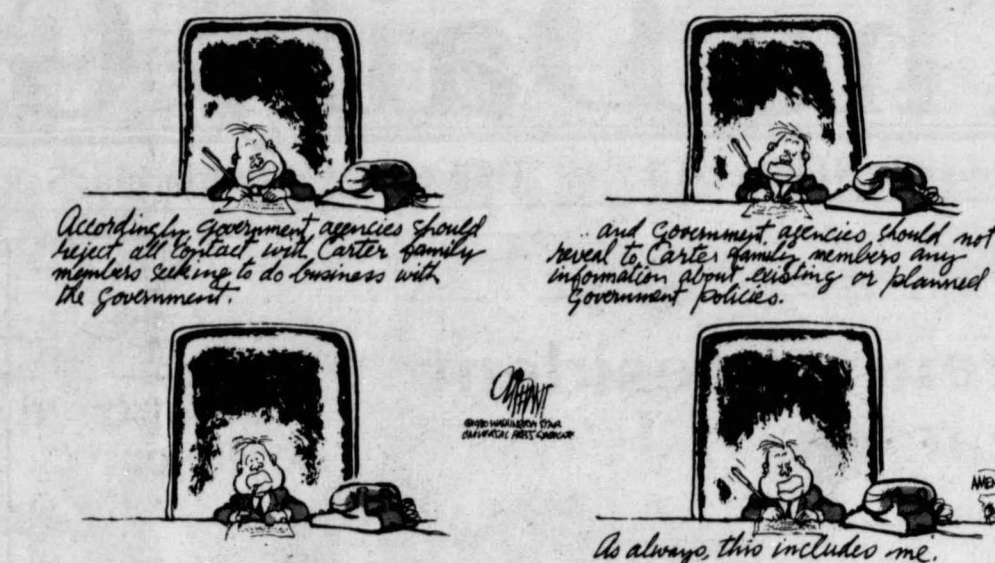 Accordingly, government agencies should
reject all contact with Carter family
members seeking to do business with
the government.
...and government agencies should not
reveal to Carter family members any
information about existing or planned
government policies.
OLIPHANT
©1980 WASHINGTON STAR
UNIVERSAL PRESS SYNDICATE
AMEN
As always, this includes me.